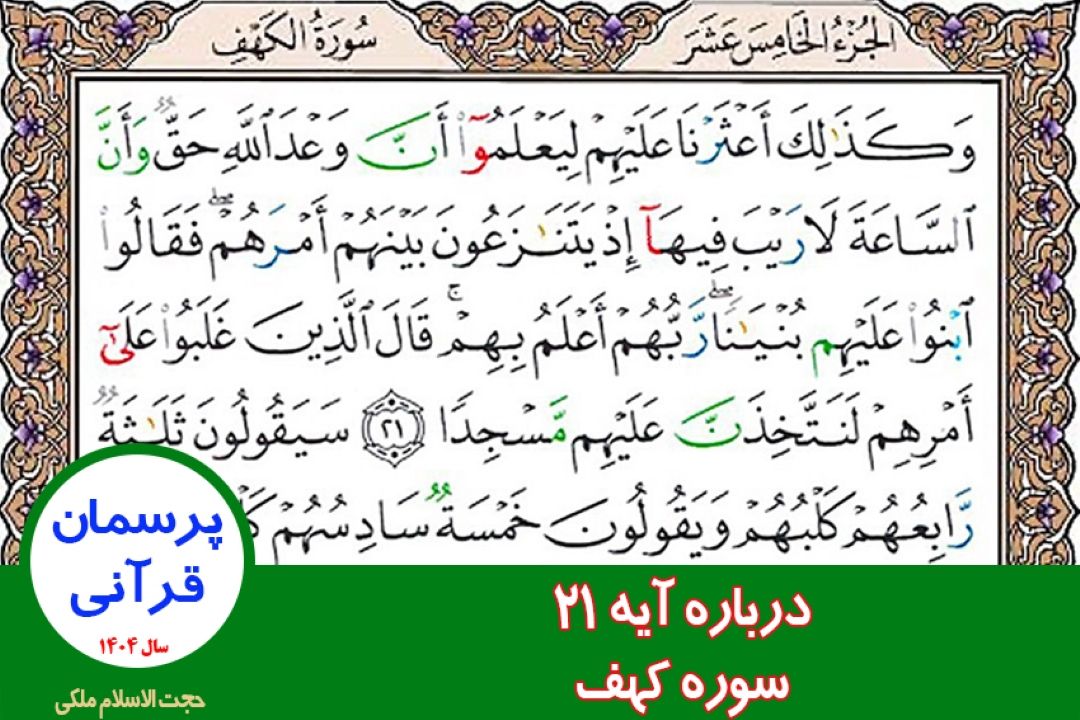 الجُزْءُ الخَامِسَ عَشَرَ
سُورَةُ الكَهْفِ
وَكَذَٰلِكَ أَعْثَرْنَا عَلَيْهِمْ لِيَعْلَمُوٓا۟ أَنَّ وَعْدَ ٱللَّهِ حَقٌّ وَأَنَّ
ٱلسَّاعَةَ لَا رَيْبَ فِيهَآ إِذْ يَتَنَٰزَعُونَ بَيْنَهُمْ أَمْرَهُمْ ۖ فَقَالُوا۟
ٱبْنُوا۟ عَلَيْهِم بُنْيَٰنًا ۖ رَّبُّهُمْ أَعْلَمُ بِهِمْ ۚ قَالَ ٱلَّذِينَ غَلَبُوا۟ عَلَىٰٓ
أَمْرِهِمْ لَنَتَّخِذَنَّ عَلَيْهِم مَّسْجِدًا ٢١ سَيَقُولُونَ ثَلَٰثَةٌ
رَّابِعُهُمْ كَلْبُهُمْ وَيَقُولُونَ خَمْسَةٌ سَادِسُهُمْ
پرسمان
قرآنی
سال ۱۴۰۴
حجت الاسلام ملکی
درباره آیه ۲۱
سوره کهف